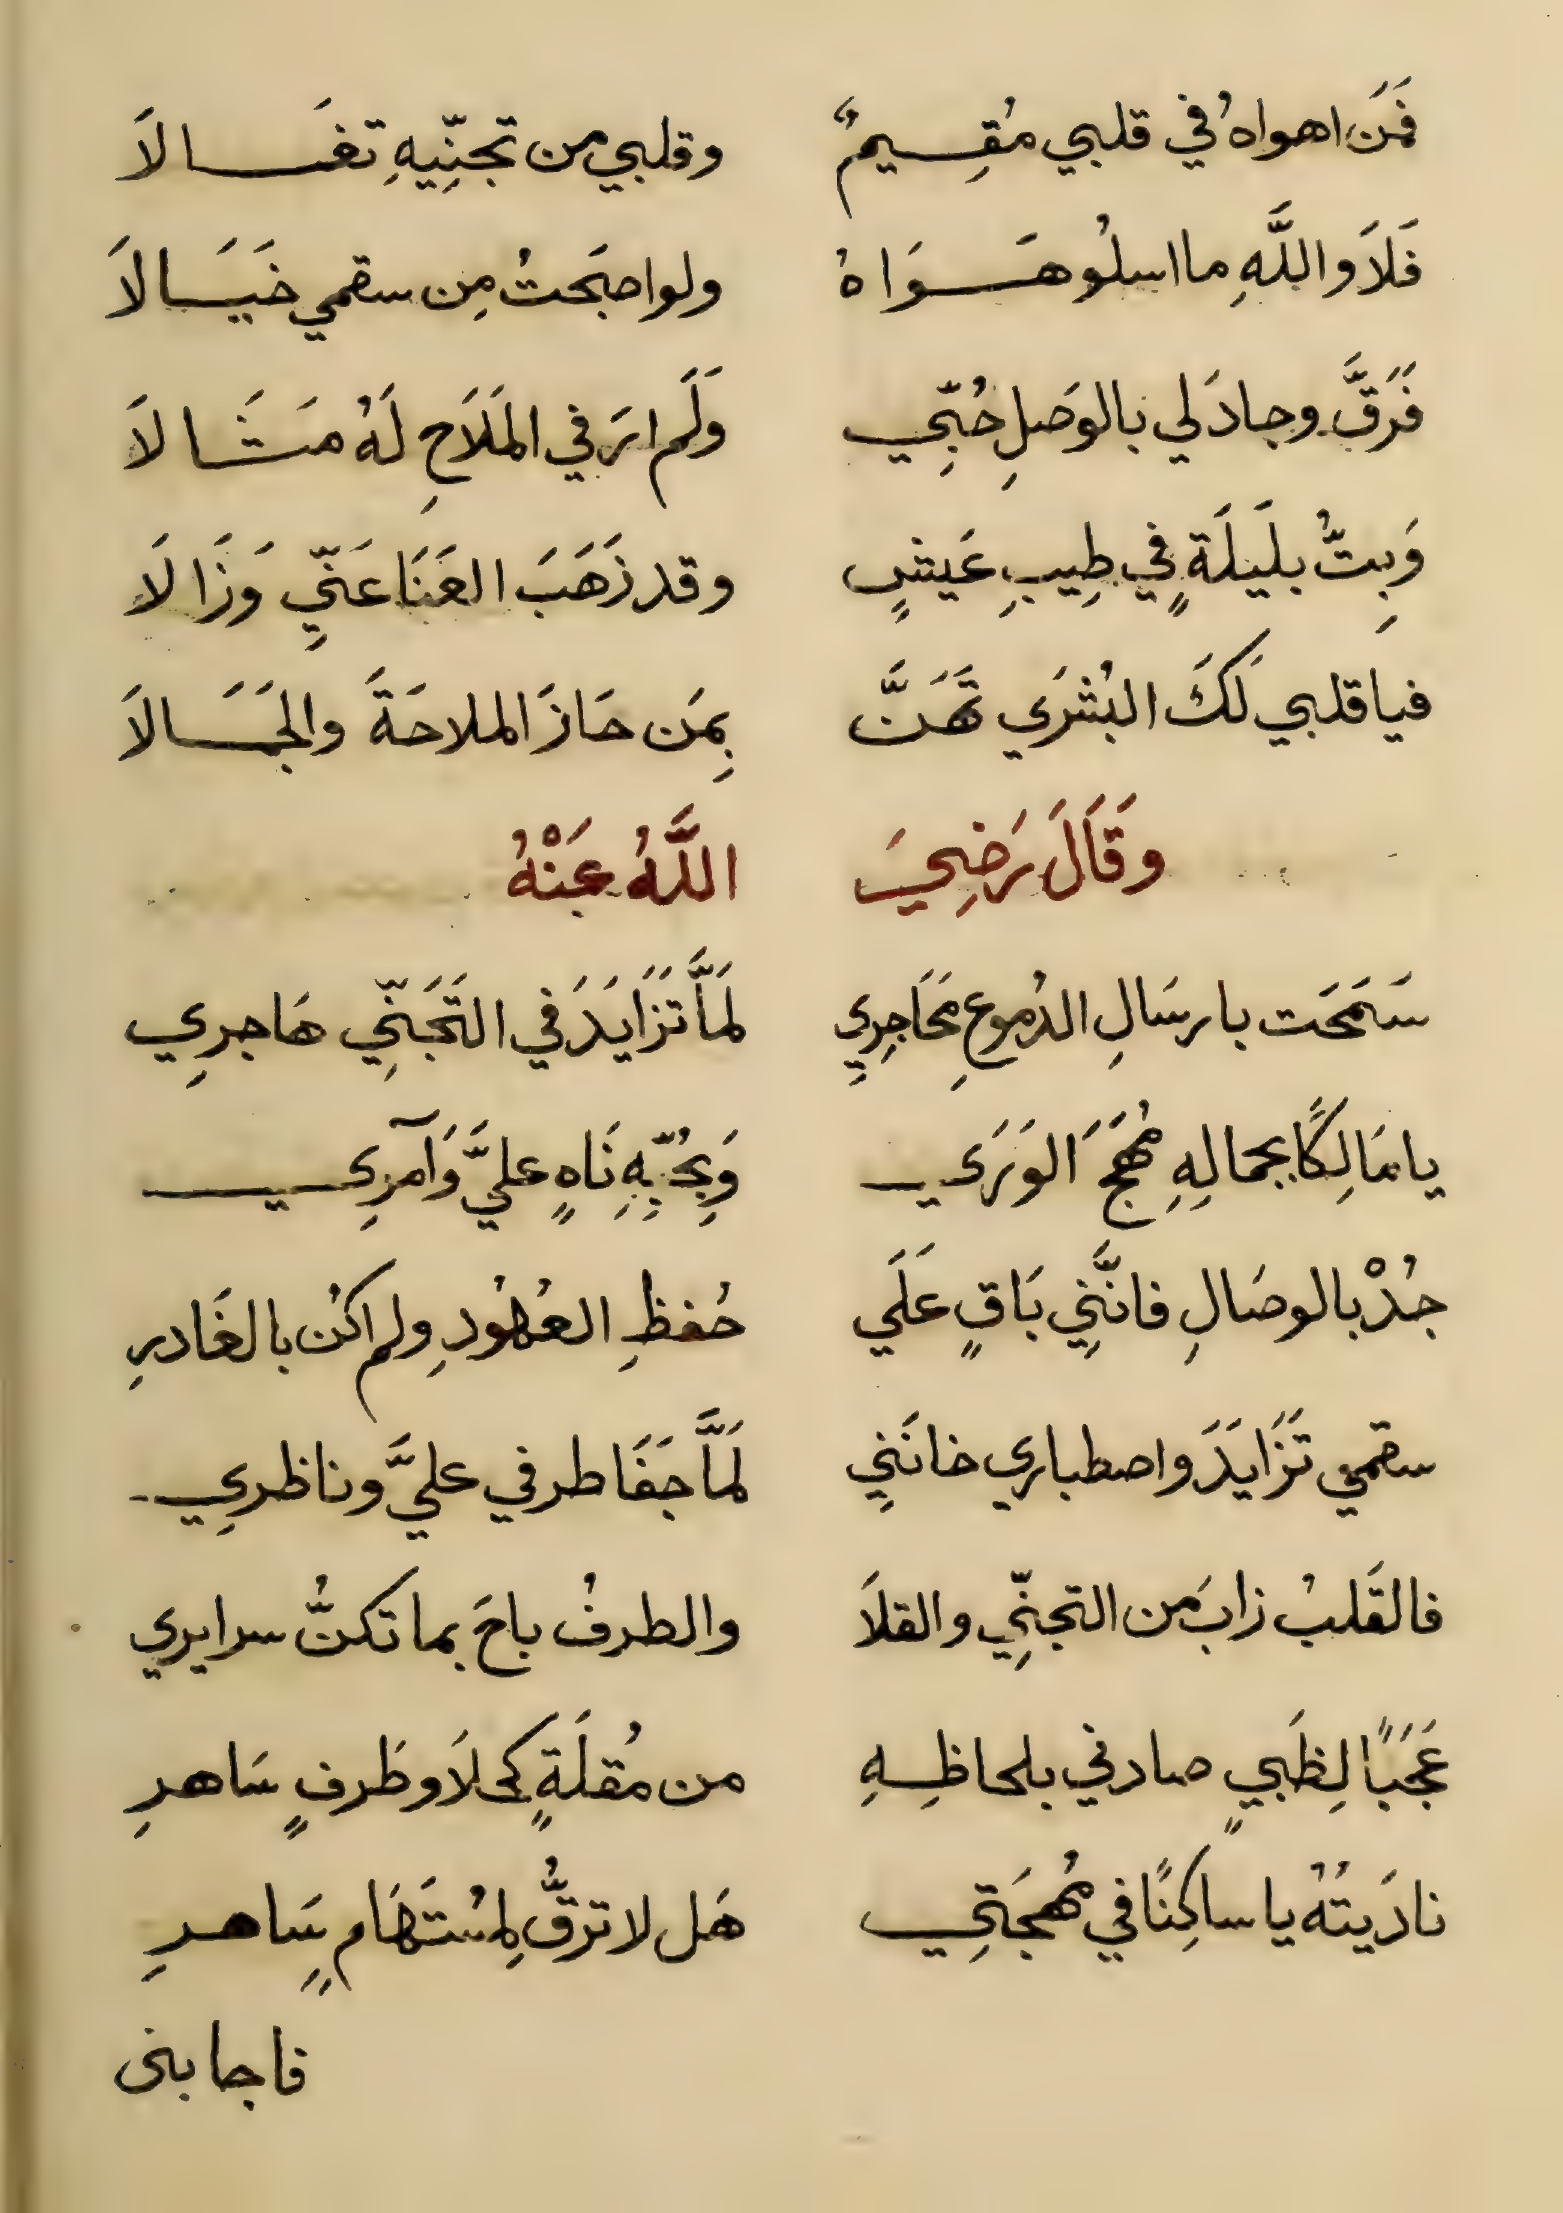 فَمَن اهواهُ في قلبي مُقِسيمٌ وقلبي من تجنّيهِ تغَالاَ
فَلاَ واللَّهِ ما اسلُو هَوَاهُ ولو اصبَحتُ مِن سقمي خَيَالاَ
فَرَقَّ وجادَ لي بالوَصلِ حُبِّي وَلَم ارَ في المَلاَحِ لَهُ مَثَالاَ
وَبِتُّ بلَيلَةٍ في طِيبِ عَيشٍ وقد ذَهَبَ العَنَا عَنِّي وَزَالَا
فيا قلبي لَكَ البُشرَي تَهَنَّ بِمَن حَازَ الملاحَةَ والجَمَالاَ
وَقَالَ رَضِيَ اللَّهُ عَنْهُ
سَمَحَت بارسَالِ الدُموعِ مَحَاجِرِي لَمَّا تَزَايَدَ في التَجَنِّي هَاجرِي
يا مَالِكًا بجمالِهِ مُهَجَ الوَرَي وَبِحُبِّهِ نَاهٍ عليَّ وَآمرِي
جُدْ بالوصَالِ فانَّنِي بَاقٍ عَلَي حُفظِ العُهُودِ ولم اكُن بالغَادرِ
سقمي تَزَايَدَ واصطباري خانَنِي لَمَّا جَفَا طرفي عليَّ وناظرِي
فالقَلبُ زابَ من التجنِّي والقلاَ والطرفُ باحَ بما تكنُّ سرايري
عَجَبًا لِظَبيٍ صادني بلحاظِهِ من مُقلَةٍ كحلاَ وطَرفٍ سَاهرِ
نادَيتُهُ يا ساكِنًا في مُهجَتِي هَل لا ترقُّ لِمُستَهَامٍ سَاهرِ
فاجابنى